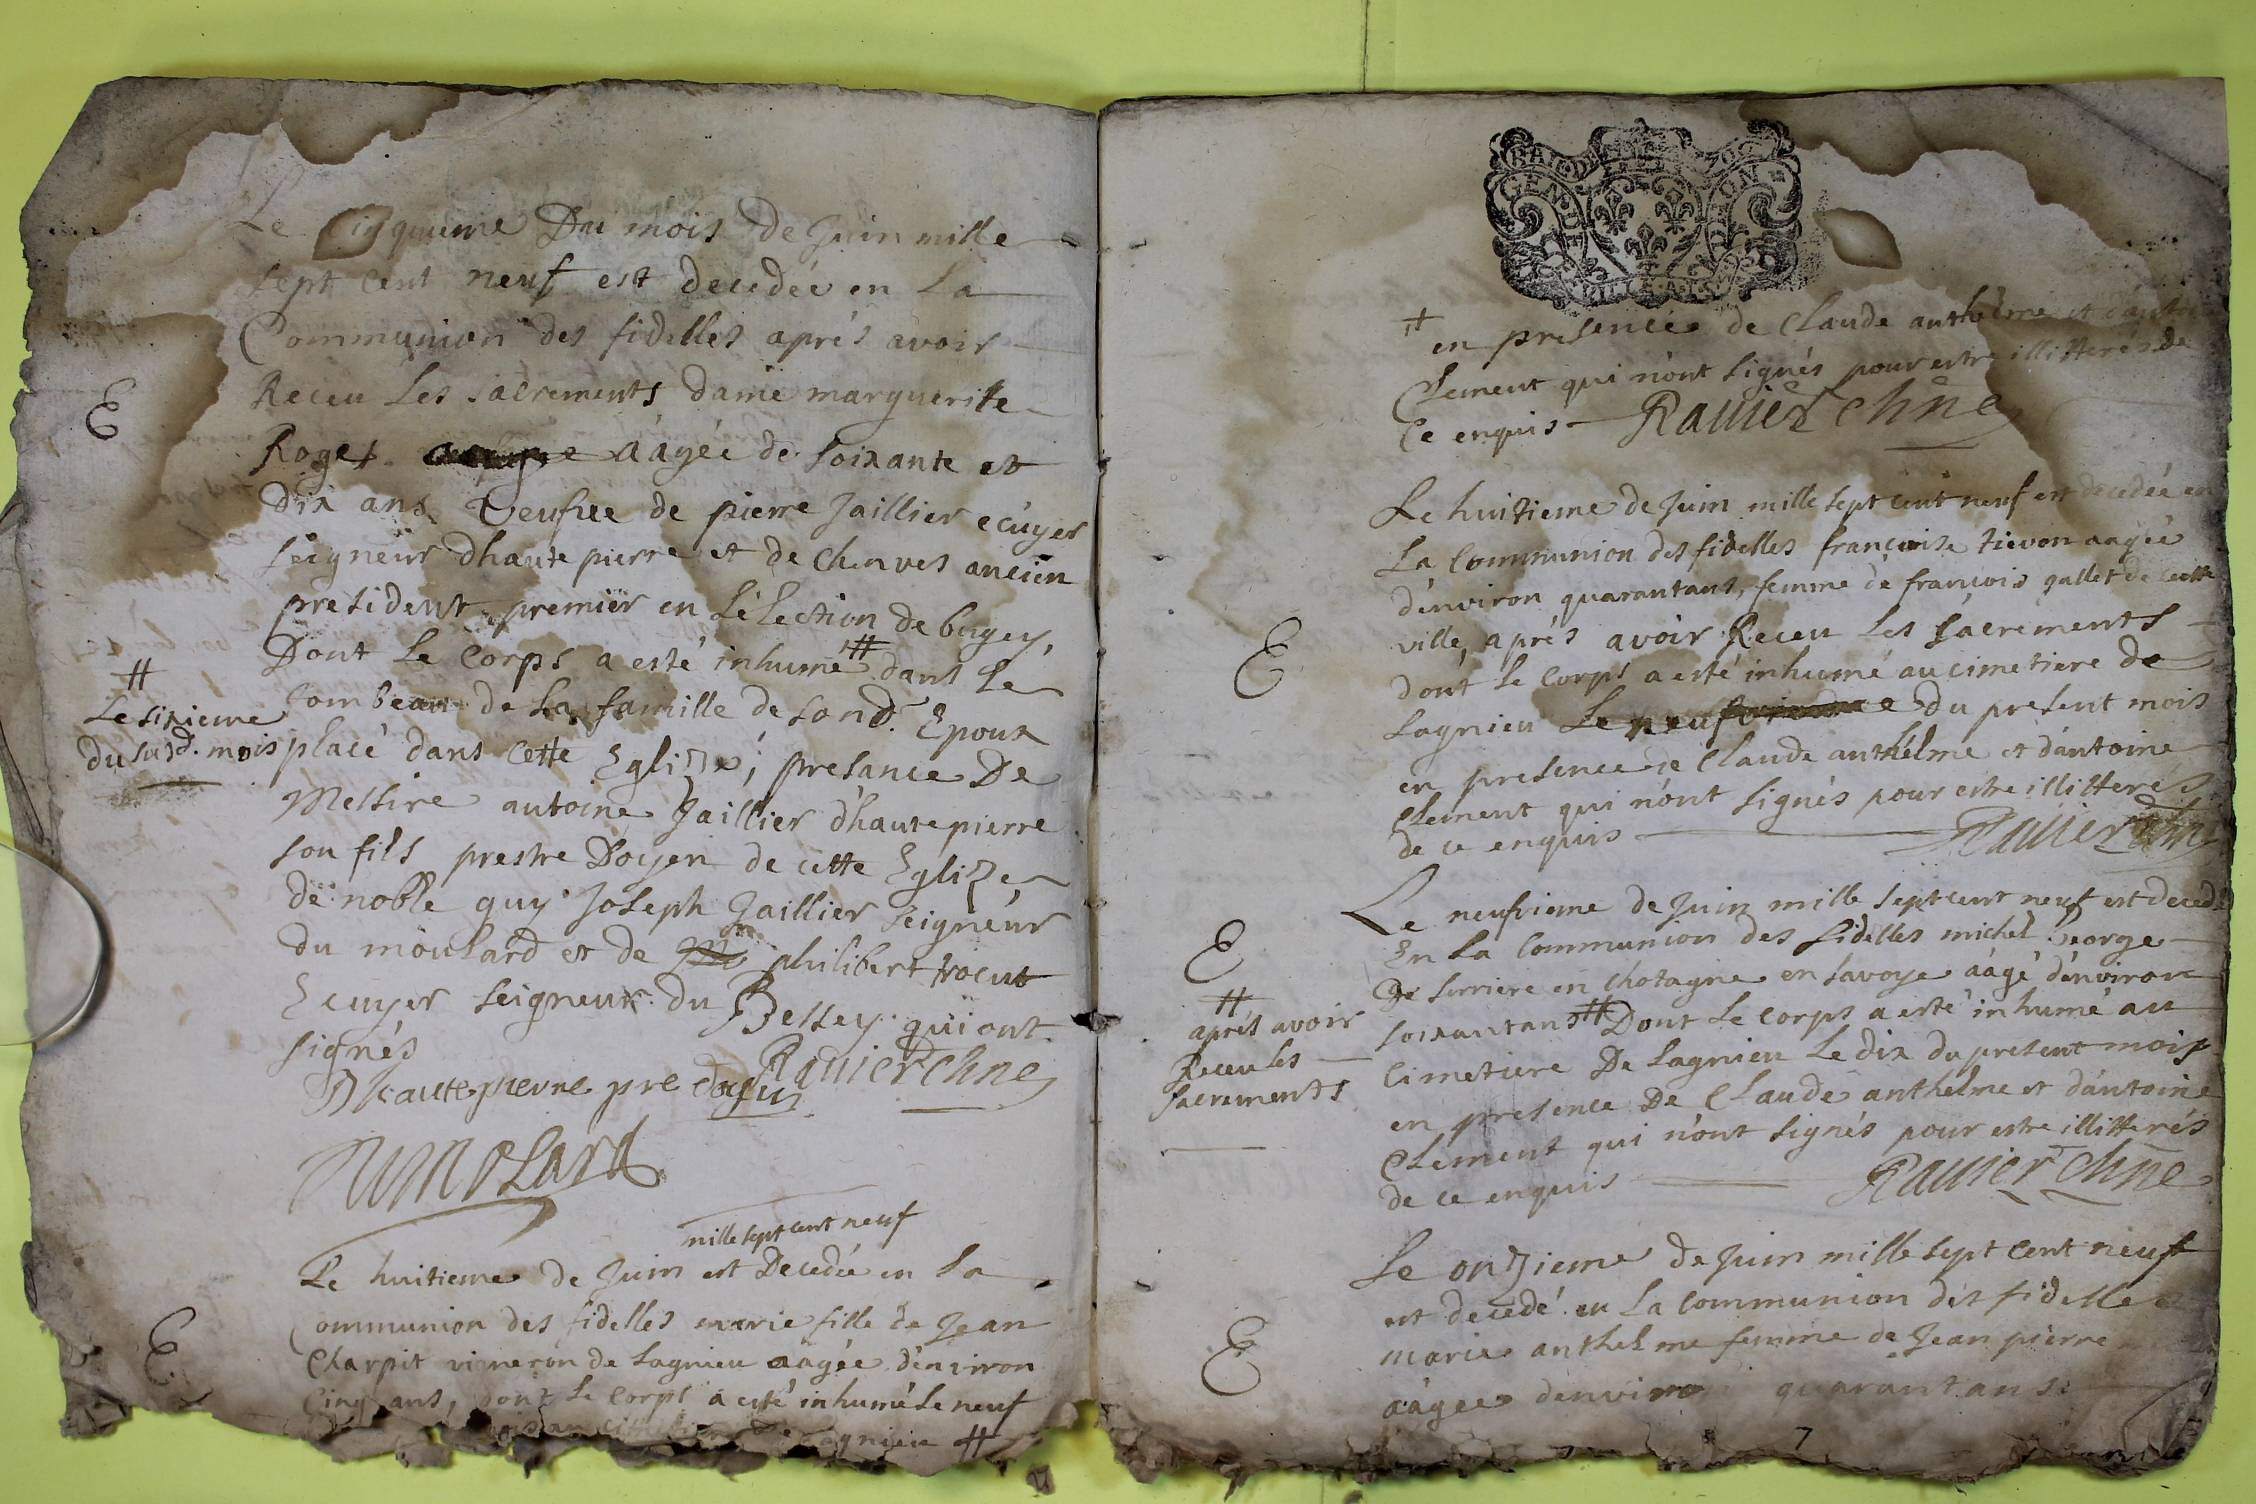 Le cinquieme Du mois de Juin mille
sept cent neuf est decedée en La
Communion des fidelles aprés avoir
Receu Les sacrements dame marguerite
Roger aagée de soixante et
Dix ans veufue de pierre Jaillier ecuyer
seigneur dhautepierre et de Chenves ancien
president premier en L'election de bugey,
Dont Le Corps a esté inhumé # dans Le
tombeau de La famille de sond. Epoux
#
Le sixieme
du susd. mois
placé dans cette Eglize, presance De
Messire antoine Jaillier d'hautepierre
son fils prestre Doyen de cette Eglize
de noble guy Joseph Jaillier seigneur
du moulard et de philibert trocut
Ecuyer seigneur du Bessey qui ont
signés
Dhautepierre pre doyen
Rauier Chne
Dumolard
mille sept cent neuf
Le huitieme de Juin est Decedée en La
Communion des fidelles marie fille de Jean
Charpit vigneron de Lagnieu aagée denviron
Cinq ans, Dont Le Corps a esté inhumé Le neuf
Lagnieu #
E
E
# en presence de Claude anthelme et
Clement qui n'ont signés pour estre illitterés de
Ce enquis Rauier Chne
Le huitieme de Juin mille sept cent neuf est decedée en
La Communion des fidelles françoise tievon aagée
d'environ quarantans, femme de françois gallet de cette
ville, aprés avoir Receu Les sacrements
dont Le Corps a esté inhumé au cimetiere de
Lagnieu Le du present mois
en presence de Claude anthelme et d'antoine
Clement qui n'ont signés pour estre illitterés
de ce enquis Rauier Chne
E
Le neufvieme de Juin mille sept cent neuf est decedé
En La Communion des fidelles michel George
De serriere en Chotagne en savoye aagé denviron
soixantans # Dont Le Corps a esté inhumé au
Cimetiere De Lagnieu Le dix du present mois
en presence De Claude anthelme et d'antoine
Clement qui n'ont signés pour estre illitterés
de ce enquis Rauier Chne
E
#
aprés avoir
Receu les
sacrements
Le onzieme de Juin mille sept cent neuf
est decedé en La Communion des fidelles
marie anthelme femme de Jean pierre
aagée denviron quarantans
E